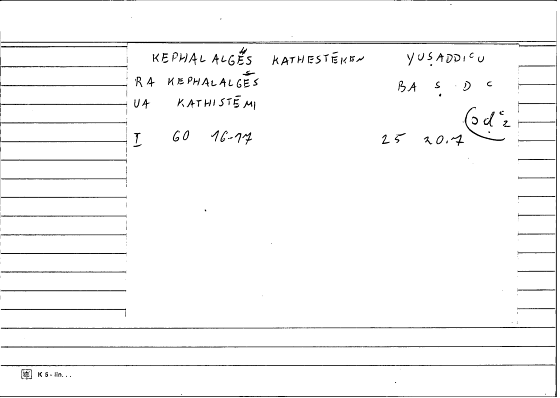 KEPHALALGĒS KATHESTĒKEN YUṢADDICU
RA KEPHALALGĒS BA Ṣ D C
UA KATHISTĒMI
I 60 16-17 25 20.7
K 5 - lin. . .